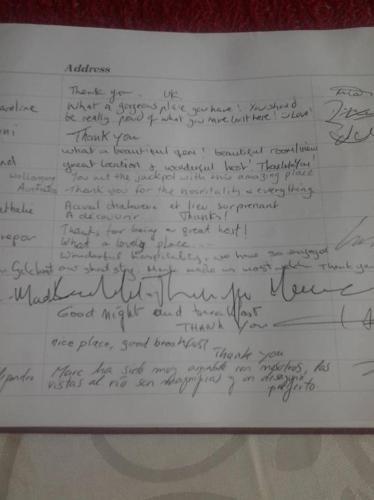 Address
Thank you. UK
What a gorgeous place you have! You should
be really proud of what you have built here!
Thank You
What a beautiful gem! beautiful room/view
great location & wonderful host! Thank You!
Wollongong You hit the jackpot with this amazing place
Australia Thank you for the hospitality & everything
Acceuil chaleureux et lieu surprenant
A découvrir Thanks!
Thanks for being a great host!
What a lovely place...
Wonderful hospitality, we have so enjoyed
our short stay. Marc made us most Thank you
Good night and breakfast
THANK YOU
nice place, good breakfast
Thank you
Marc ha sido muy amable con nosotros, las
vistas al río son magníficas y un desayuno
perfecto